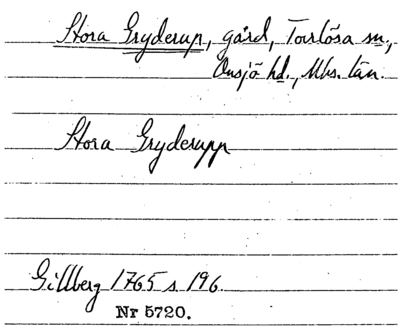 Stora Gryderup, gård, Torrlösa sn.,
Onsjö hd., Mbs. län.
Stora Gryderupp
Gillberg 1765 s 196
Nr 5720.